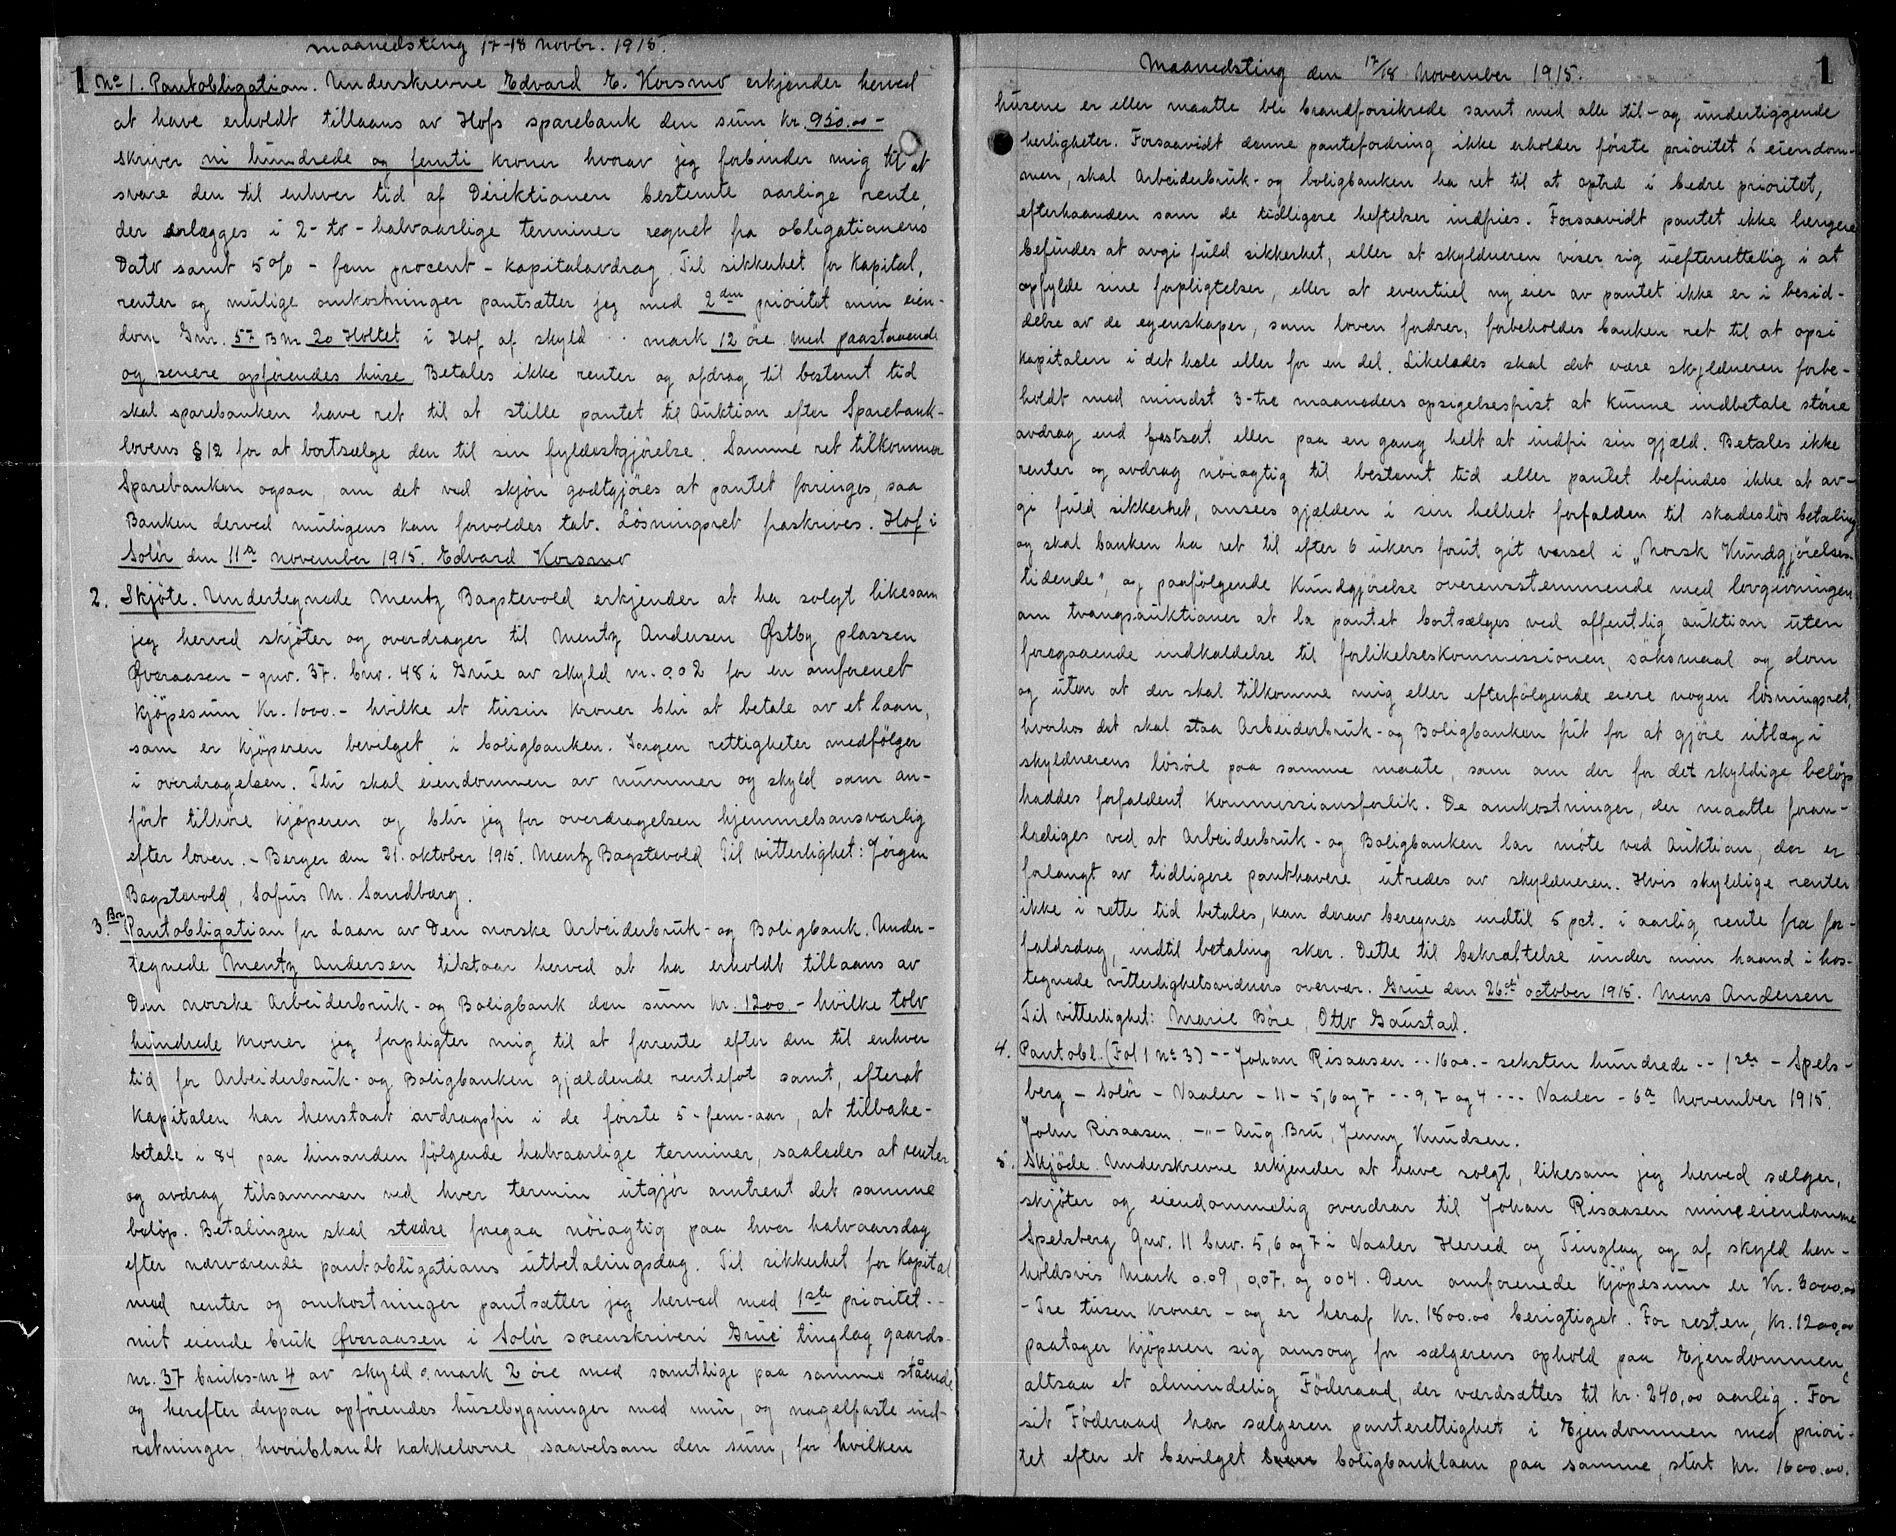 Maanedsting 17-18 Novbr. 1915.
1 No 1. Pantobligation. Underskrevne Edvard E. Korsmo erkjender herved
at have erholdt tillaans av Hofs sparebank den sum kr. 950.00 -
skriver ni hundrede og femti kroner hvorav jeg forbinder mig til at
svare den til enhver tid af Direktionen bestemte aarlige rente,
der erlægges i 2 - to - halvaarlige terminer regnet fra obligationens
Dato samt 5 o/o - fem procent - kapitalavdrag. Til sikkerhet for Kapital,
renter og mulige omkostninger pantsætter jeg med 2den prioritet min eien-
dom Gnr. 57 B nr 20 Holtet i Hof af skyld .. mark 12 öre med paastaaende
og senere opförendes huse Betales ikke renter og afdrag til bestemt tid
skal sparebanken have ret til at stille pantet til Auktion efter Sparebank-
lovens § 12 for at bortsælge den til sin fyldestgjörelse. Samme ret tilkommer
Sparebanken ogsaa, om det ved skjön godtgjöres at pantet forringes, saa
Banken derved muligens kan forvoldes tab. Lösningsret fraskrives. Hof i
Solör den 11te november 1915. Edvard Korsmo
2. Skjöte. Undertegnede Mentz Bagstevold erkjender at ha solgt likesom
jeg herved skjöter og overdrager til Mentz Andersen Østby plassen
Øveraasen - gnr. 37. bnr. 48 i Grue av skyld m. 0.02 for en omforenet
kjöpesum Kr. 1000.- hvilke et tusin kroner blir at betale av et laan,
som er kjöperen bevilget i boligbanken. Ingen rettigheter medfölger
i overdragelsen. Thi skal eiendommen av nummer og skyld som an-
fört tilhöre kjöperen og blir jeg for overdragelsen hjemmelsansvarlig
efter loven. - Berger den 21. oktober 1915. Mentz Bagstevold Til vitterlighet: Jörgen
Bagstevold, Sofus M. Sandberg.
3. Pantobligation for Laan av Den norske Arbeiderbruk- og Boligbank. Under-
tegnede Mentz Andersen tilstaar herved at ha erholdt tillaans av
Den norske Arbeiderbruk- og Boligbank den sum kr. 1200 - hvilke tolv
hundrede kroner jeg forpligter mig til at forrente efter den til enhver
tid for Arbeiderbruk- og Boligbanken gjældende rentefot samt, efterat
Kapitalen har henstaat avdragsfri i de förste 5 - fem - aar, at tilbake-
betale i 84 paa hinanden fölgende halvaarlige terminer, saaledes at renter
og avdrag tilsammen ved hver termin utgjör omtrent det samme
belöp. Betalingen skal stedse foregaa nöiagtig paa hver halvaarsdag
efter nærværende pantobligations utbetalingsdag. Til sikkerhet for Kapital
med renter og omkostninger pantsætter jeg herved med 1ste prioritet. -
mit eiende bruk Øveraasen i Solör sorenskriveri Grue tinglag gaards-
nr. 37 bruks-nr 4 av skyld 0 mark 2 öre med samtlige paa samme stående
og herefter derpaa opförendes husebygninger med mur, og nagelfaste ind-
retninger, hvoriblandt kakkelovne, saavelsom den sum, for hvilken
Maanedsting den 17/18 November 1915. 1
husene er eller maatte bli brandforsikrede samt med alle til- og underliggende
herligheter. Forsaavidt denne pantefordring ikke erholder förste prioritet i eiendom-
men, skal Arbeiderbruk- og boligbanken ha ret til at optræ i bedre prioritet,
efterhaanden som de tidligere heftelser indfries. Forsaavidt pantet ikke længere
befindes at avgi fuld sikkerhet, eller at skyldneren viser sig uefterrettelig i at
opfylde sine forpligtelser, eller at eventuel ny eier av pantet ikke er i besid-
delse av de egenskaper, som loven fordrer, forbeholdes banken ret til at opsi
kapitalen i det hele eller for en del. Likeledes skal det være skyldneren forbe-
holdt med mindst 3 - tre maaneders opsigelsesfrist at kunne indbetale större
avdrag end fastsat eller paa en gang helt at indfri sin gjæld. Betales ikke
renter og avdrag nöiagtig til bestemt tid eller pantet befindes ikke at av-
gi fuld sikkerhet, ansees gjælden i sin helhet forfalden til skadeslös betaling
og skal banken ha ret til efter 6 ukers forut git varsel i "Norsk Kundgjörelses-
tidende", og paafölgende Kundgjörelse overensstemmende med lovgivningen
om tvangsauktioner at la pantet bortsælges ved offentlig auktion uten
foregaaende indkaldelse til forlikelseskommissionen, söksmaal og dom
og uten at der skal tilkomme mig eller efterfölgende eiere nogen lösningsret,
hvorhos det skal staa Arbeiderbruk- og Boligbanken frit for at gjöre utlæg i
skyldnerens lösöre paa samme maate, som om der for det skyldige belöp
haddes forfaldent Kommissionsforlik. De omkostninger, der maatte foran-
lediges ved at Arbeiderbruk- og Boligbanken lar möte ved Auktion, der er
forlangt av tidligere panthavere, utredes av skyldneren. Hvis skyldige renter
ikke i rette tid betales, kan derav beregnes indtil 5 pct. i aarlig rente fra for-
faldsdag, indtil betaling sker. Dette til bekræftelse under min haand i hos-
tegnede vitterlighetsvidners overvær. Grue den 26de october 1915. Mens Andersen
Til vitterlighet: Marie Böre, Otto Gaustad.
4. Pantobl. (Fol 1 no 3) -- Johan Risaasen -- 1600. - seksten hundrede -- 1ste - Spels-
berg - Solör - Vaaler - 11 - 5, 6 og 7 -- 9, 7 og 4 --- Vaaler - 6te November 1915.
John Risaasen. -"- Aug. Bru, Jenny Knudsen.
5. Skjöde. Underskrevne erkjender at have solgt, likesom jeg herved sælger,
skjöter og eiendommelig overdrar til Johan Risaasen mine eiendomme
Spelsberg Gnr. 11 bnr. 5, 6 og 7 i Vaaler Herred og Tinglag og af skyld hen-
holdsvis Mark 0.09, 0,07, og 0 04. Den omforenede kjöpesum er Kr. 3000.00
- Tre tusen kroner - og er heraf Kr. 1800.00 berigtiget. For resten, kr. 1200,00
paatager kjöperen sig omsorg for sælgerens ophold paa Ejendommen,
altsaa et almindelig Föderaad, der værdsættes til kr. 240,00 aarlig. For
sit Föderaad har sælgeren panterettighet i Ejendommen med priori-
tet efter et bevilget boligbanklaan paa samme, stort Kr. 1600.00.